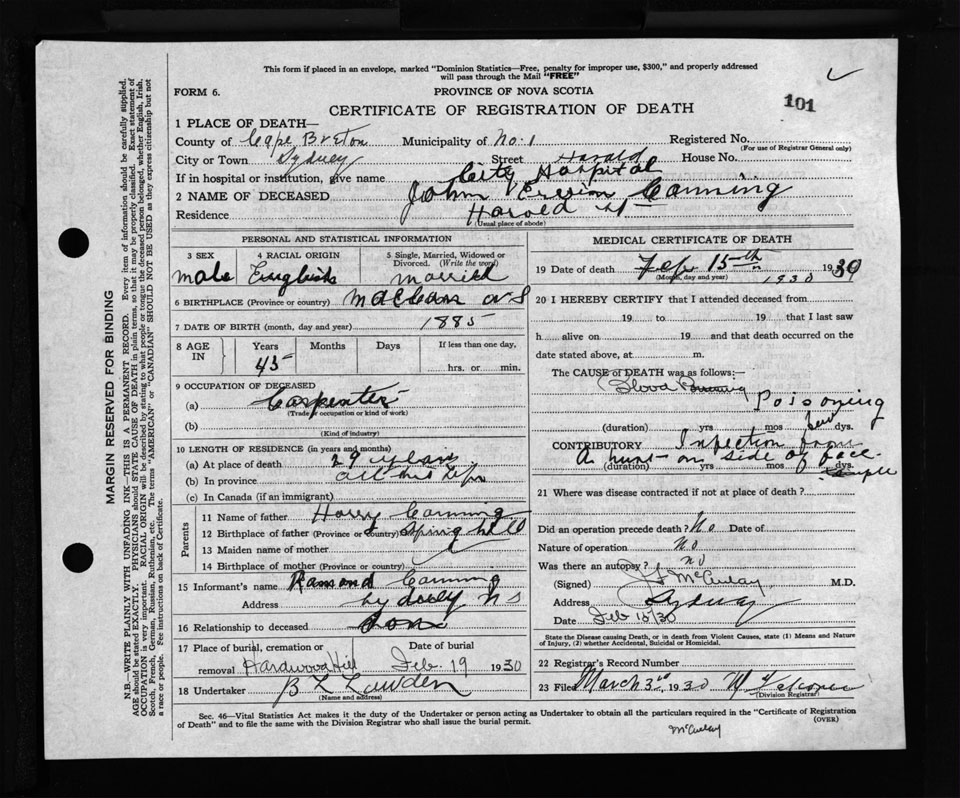 This form if placed in an envelope, marked "Dominion Statistics—Free, penalty for improper use, $300," and properly addressed
will pass through the Mail "FREE"
FORM 6.
PROVINCE OF NOVA SCOTIA
101
CERTIFICATE OF REGISTRATION OF DEATH
1 PLACE OF DEATH—
County of Cape Breton Municipality of No. 1 Registered No.
(For use of Registrar General only)
City or Town Sydney Street Harald House No.
If in hospital or institution, give name City Hospital
2 NAME OF DECEASED John Canning
Residence Harold St
(Usual place of abode)
PERSONAL AND STATISTICAL INFORMATION
3 SEX 4 RACIAL ORIGIN 5 Single, Married, Widowed or Divorced. (Write the word)
male English married
6 BIRTHPLACE (Province or country) N S
7 DATE OF BIRTH (month, day and year) 1885
8 AGE IN Years Months Days If less than one day,
45 hrs. or min.
9 OCCUPATION OF DECEASED
(a) Carpenter
(Trade, occupation or kind of work)
(b)
(Kind of industry)
10 LENGTH OF RESIDENCE (in years and months)
(a) At place of death 29 years
(b) In province all his life
(c) In Canada (if an immigrant)
Parents
11 Name of father Harry Canning
12 Birthplace of father (Province or country) Spring hill
13 Maiden name of mother
14 Birthplace of mother (Province or country)
15 Informant's name Ramond Canning
Address N S
16 Relationship to deceased Son
17 Place of burial, cremation or removal Hardwood Hill Date of burial Feb. 19 1930
18 Undertaker B L Lowden
(Name and address)
MEDICAL CERTIFICATE OF DEATH
19 Date of death Feb 15th 1930 1930
(Month, day and year)
20 I HEREBY CERTIFY that I attended deceased from
19 to 19 that I last saw
h alive on 19 and that death occurred on
date stated above, at m.
The CAUSE of DEATH was as follows:—
Blood Poisoning
(duration) yrs mos dys.
CONTRIBUTORY Infection from
A on side of face
(duration) yrs mos dys.
21 Where was disease contracted if not at place of death?
Did an operation precede death? No Date of
Nature of operation no
Was there an autopsy? no
(Signed) McCurlay M.D.
Address Sydney
Date Feb 18/30
State the Disease causing Death, or in death from Violent Causes, state (1) Means and Nature
of Injury, (2) whether Accidental, Suicidal or Homicidal.
22 Registrar's Record Number
23 Filed March 3rd, 1930
(Division Registrar)
Sec. 46—Vital Statistics Act makes it the duty of the Undertaker or person acting as Undertaker to obtain all the particulars required in the "Certificate of Registration
of Death" and to file the same with the Division Registrar who shall issue the burial permit.
(OVER)
McCurlay
MARGIN RESERVED FOR BINDING
N.B.—WRITE PLAINLY WITH UNFADING INK—THIS IS A PERMANENT RECORD. Every item of information should be carefully supplied.
AGE should be stated EXACTLY. PHYSICIANS should STATE CAUSE OF DEATH in plain terms, so that it may be properly classified. Exact statement of
OCCUPATION is very important. RACIAL ORIGIN will be described by stating to what people or tongue the deceased person belonged, whether English, Irish,
Scotch, French, German, Russian, Ruthenian, etc. The terms "AMERICAN" or "CANADIAN" SHOULD NOT BE USED as they express citizenship but not
a race or people. Fee instructions on back of Certificate.